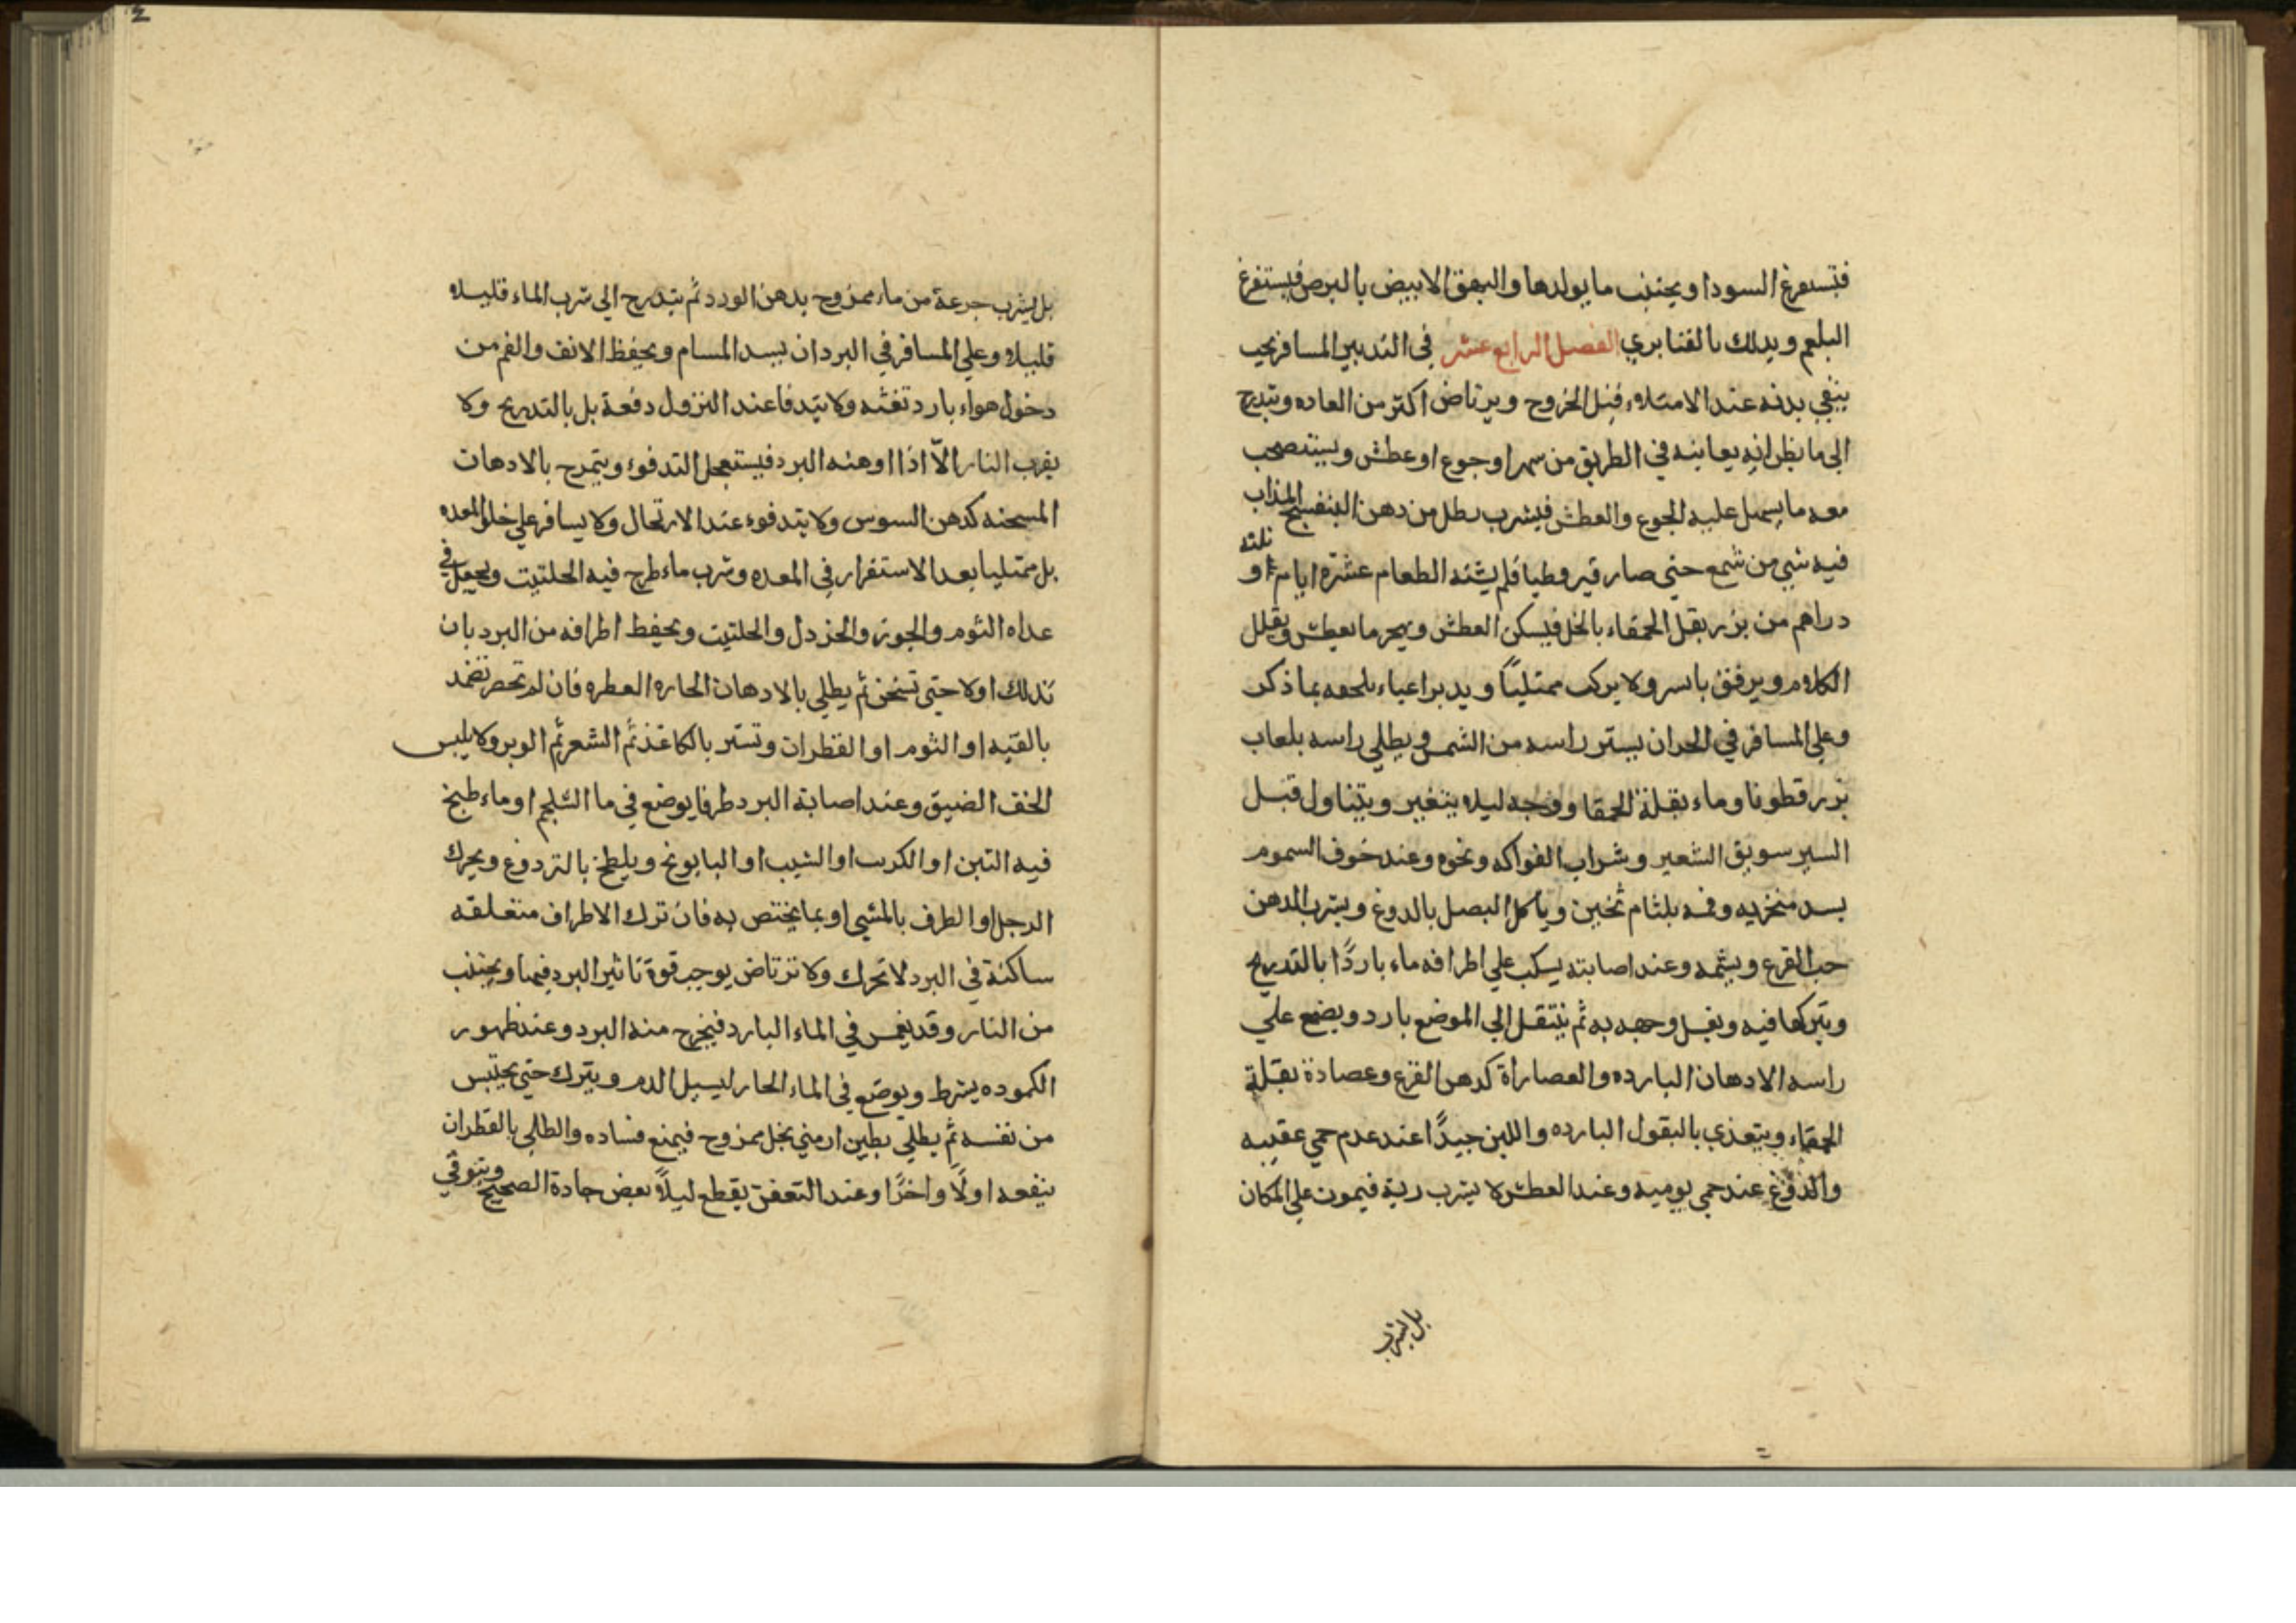 فتستفرغ السودا ويجتنب ما يولدها والبهق الابيض بالبرص فيستفرغ
البلغم ويدلك بالقنابري الفصل الرابع عشر في التدبير المسافر يجب
ينقي بدنه عند الامتلاء قبل الخروج ويرتاض اكثر من العاده ويتدرج
الى ما يظن انه يعاينه في الطريق من سهر او جوع او عطش ويستصحب
معه ما يسهل عليه الجوع والعطش فيشرب رطل من دهن البنفسج المذاب
فيه شي من شمع حتي صار قيروطيا فلم يشته الطعام عشرة ايام او ثلثه
دراهم من بزر بقل الحمقاء بالخل فيسكن العطش ويهجر ما يعطش ويقلل
الكلام ويرفق بالسير ولا يركب ممتلياً ويدبر اعياء يلحقه بما ذكر
وعلي المسافر في الحر ان يستر راسه من الشمس ويطلي راسه بلعاب
بزر قطونا وماء بقلة الحمقا ووجهه ليلا يتغير ويتناول قبل
السير سويق الشعير وشراب الفواكه ونحوه وعند خوف السموم
يسد منخريه وفمه بلثام ثخين وياكل البصل بالدوغ ويشرب الدهن
حب القرع ويشمه وعند اصابته يسكب علي اطرافه ماء بارداً بالتدريج
ويتركها فيه ويغسل وجهه به ثم ينتقل الي الموضع بارد ويضع علي
راسه الادهان البارده والعصاراة كدهن القرع وعصادة بقلة
الحمقاء ويتغذي بالبقول البارده واللبن جيداً عند عدم حمي عقيبه
والدوغ عند حمي يوميه وعند العطش لا يشرب ريه فيموت علي المكان
بل يشرب
بل يشرب جرعة من ماء ممزوج بدهن الورد ثم يتدرج الي شرب الماء قليلا
قليلا وعلي المسافر في البرد ان يسد المسام ويحفظ الانف والفم من
دخول هواء بارد تغثه ولا يتدفا عند النزول دفعة بل بالتدريج ولا
يقرب النار الّا اذا اوهنه البرد فيستعجل التدفوء ويتمرح بالادهان
المسخنه كدهن السوس ولا يتدفوء عند الارتحال ولا يسافر علي خلو المعده
بل ممتليا بعد الاستقرار في المعده وشرب ماء طرح فيه الحلتيت ويجعل في
غداه الثوم والجوز والخردل والحلتيت ويحفظ اطرافه من البرد بان
تدلك اولا حتي تسخن ثم يطلي بالادهان الحاره العطره فان لم تحضر تضمد
بالقنه او الثوم او القطران وتستر بالكاغذ ثم الشعر ثم الوبر ولا يلبس
الخف الضيق وعند اصابة البرد طرفا يوضع في ما الشلجم او ماء طبخ
فيه التبن او الكرنب او الشبت او البابونج ويلطخ بالتردوغ ويحرك
الرجل او الطرف بالمشي او بما يختص به فان ترك الاطراف متعلقه
ساكنة في البرد لا تحرك ولا ترتاض يوجب قوة تاثير البرد فيها ويجتنب
من النار وقد يغمس في الماء البارد فيخرج منه البرد وعند ظهور
الكموده يشرط ويوضع في الماء الحار ليسيل الدم ويترك حتي يحتبس
من نفسه ثم يطلي بطين ارمني بخل ممزوج فيمنع فساده والطلي بالقطران
ينفعه اولًا واخرًا وعند التعفن يقطع ليلاً بعض جادة الصحيح ويتوقي